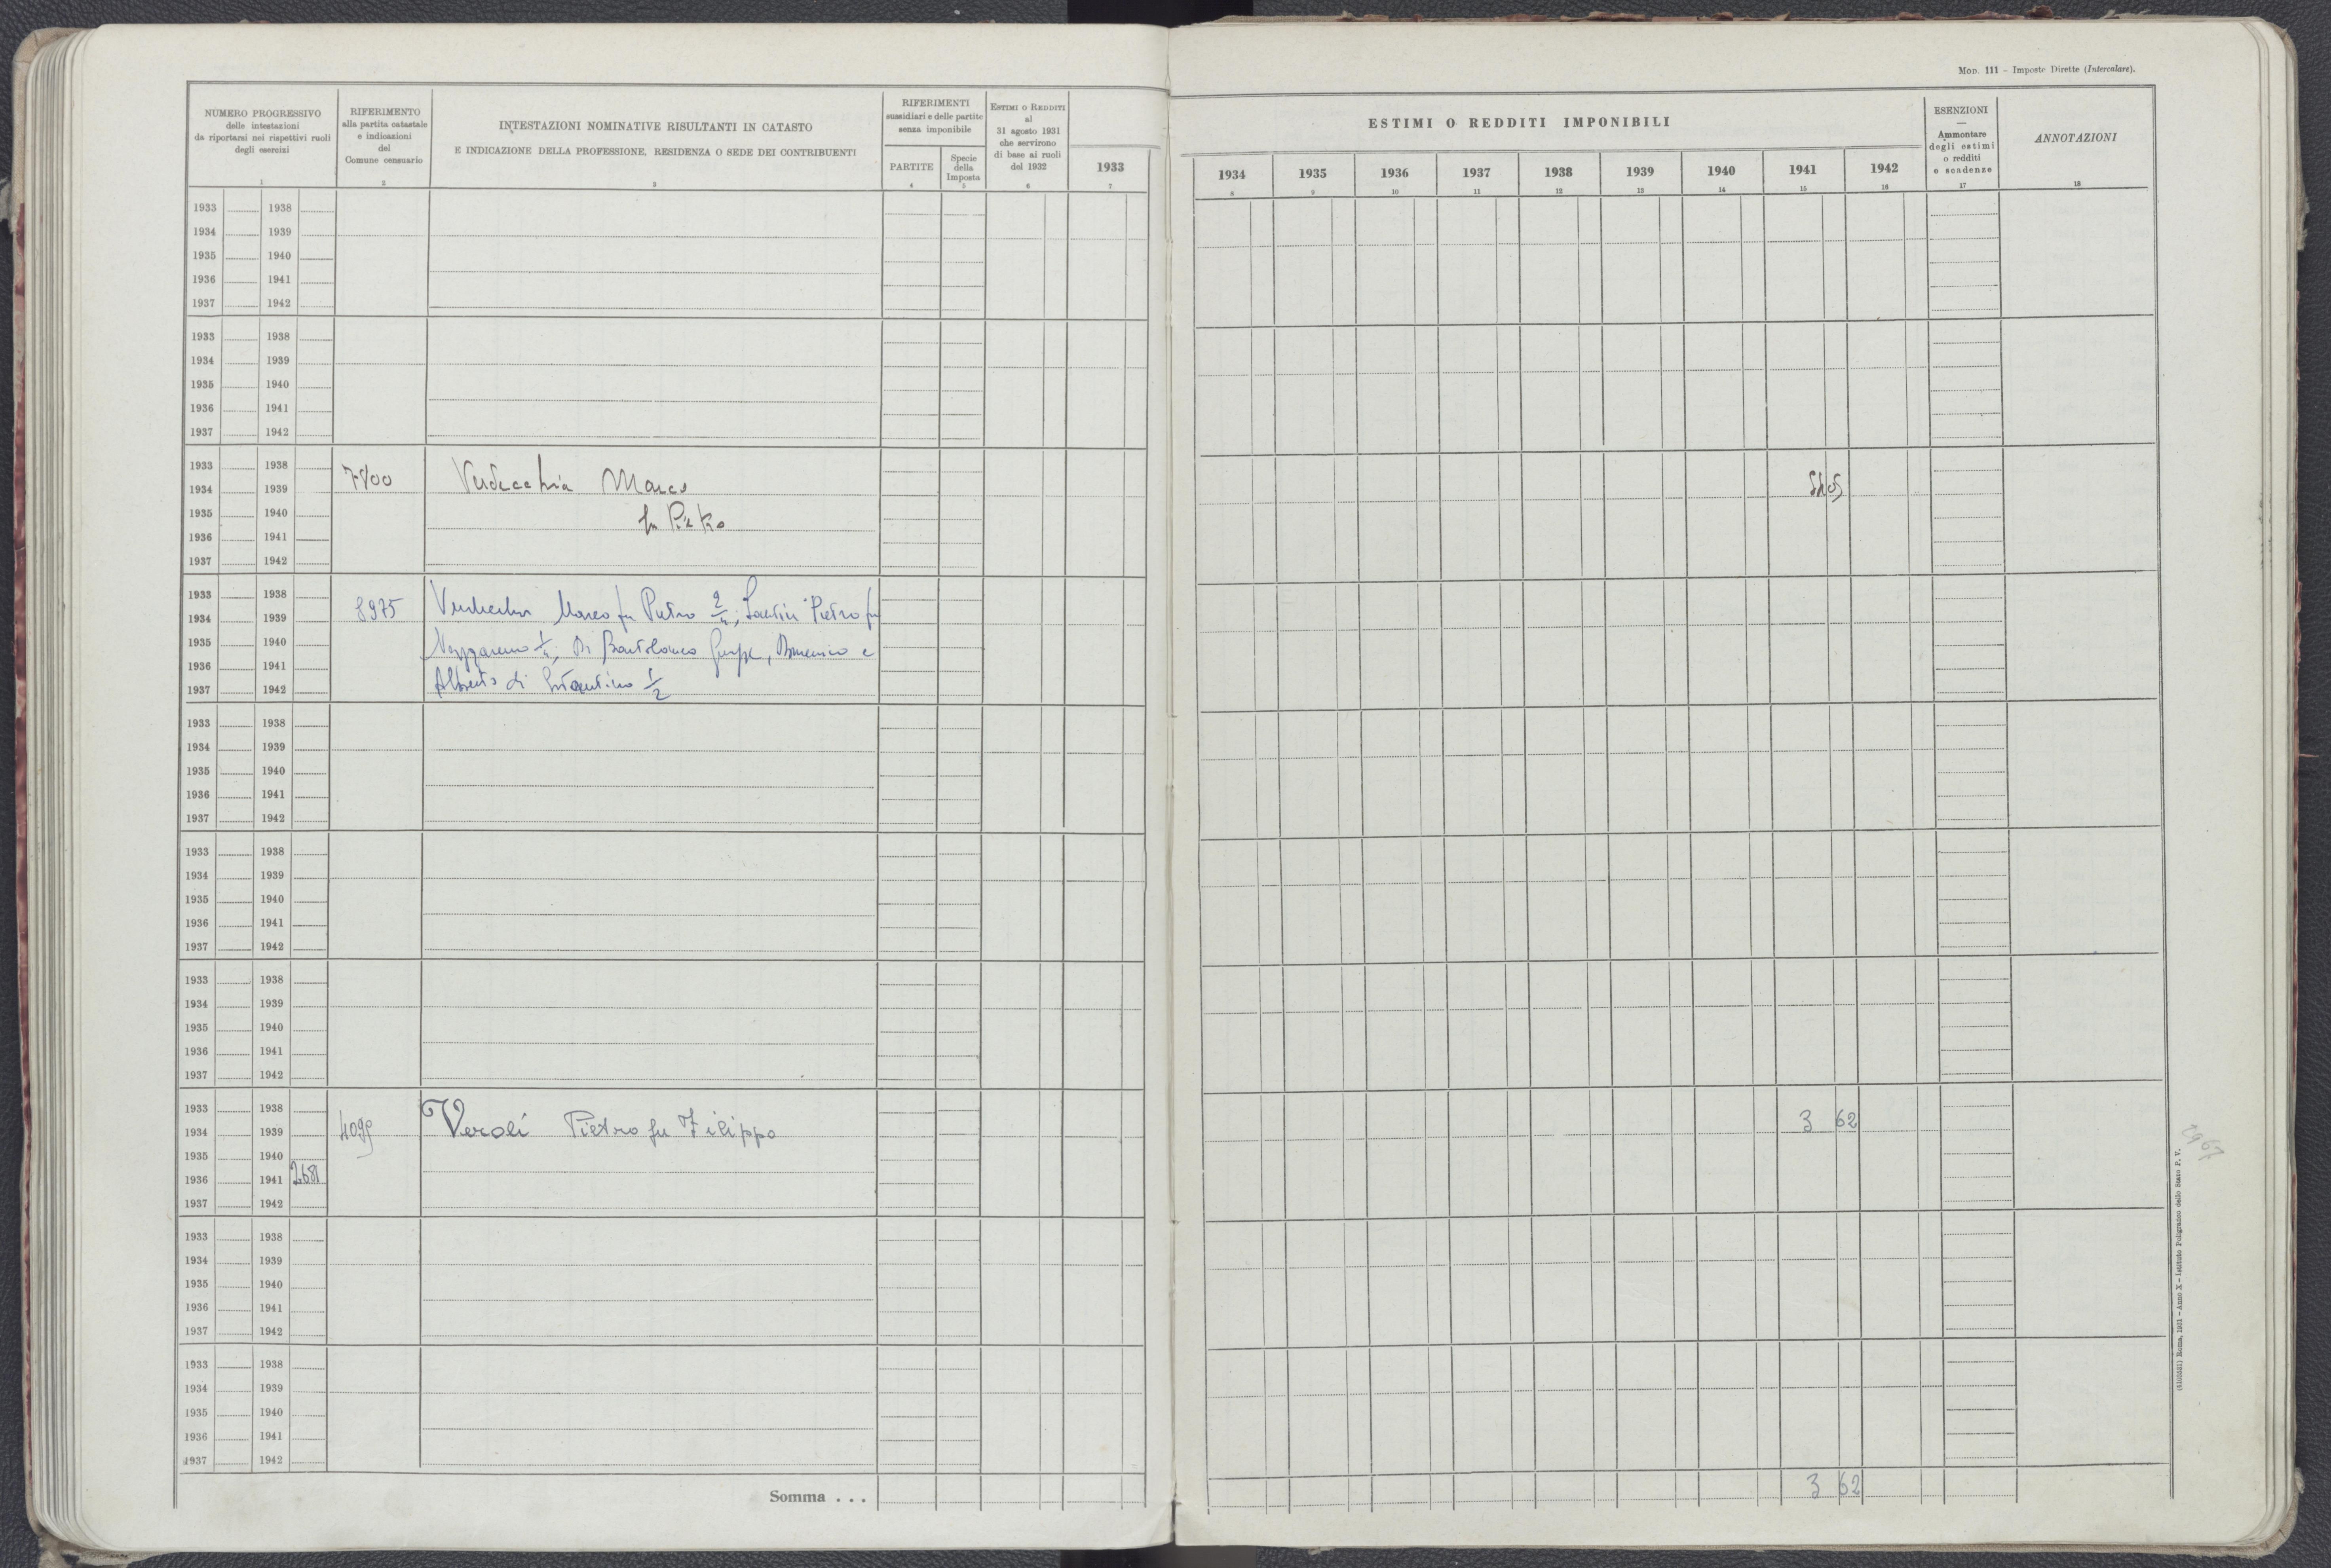 Mod. 111 - Imposte Dirette (Intercalare).
NUMERO PROGRESSIVO
delle intestazioni
da riportarsi nei rispettivi ruoli
degli esercizi
1
RIFERIMENTO
alla partita catastale
e indicazioni
del
Comune censuario
2
INTESTAZIONI NOMINATIVE RISULTANTI IN CATASTO
E INDICAZIONE DELLA PROFESSIONE, RESIDENZA O SEDE DEI CONTRIBUENTI
3
RIFERIMENTI
sussidiari e delle partite
senza imponibile
PARTITE
4
Specie
della
Imposta
5
Estimi o Redditi
al
31 agosto 1931
che servirono
di base ai ruoli
del 1932
6
1933
7
ESTIMI O REDDITI IMPONIBILI
1934 1935 1936 1937 1938 1939 1940 1941 1942
8 9 10 11 12 13 14 15 16
ESENZIONI
—
Ammontare
degli estimi
o redditi
e scadenze
17
ANNOTAZIONI
18
1933 1938
1934 1939
1935 1940
1936 1941
1937 1942
1933 1938
1934 1939
1935 1940
1936 1941
1937 1942
1933 1938
7800 Verdecchia Marco
1934 1939
fu Pietro
1935 1940
1936 1941
1937 1942
1933 1938
8975 Verdecchia Marco fu Pietro 2/4; Santini Pietro fu
1934 1939
1935 1940
Nazzareno 1/4; Di Bartolomeo Giuseppe, Domenico e
1936 1941
Alberto di 1/2
1937 1942
1933 1938
1934 1939
1935 1940
1936 1941
1937 1942
1933 1938
1934 1939
1935 1940
1936 1941
1937 1942
1933 1938
1934 1939
1935 1940
1936 1941
1937 1942
1933 1938
Veroli Pietro fu Filippo 3 62
1934 1939
1935 1940
1936 1941 2681
1937 1942
1933 1938
1934 1939
1935 1940
1936 1941
1937 1942
1933 1938
1934 1939
1935 1940
1936 1941
1937 1942
Somma . . . 3 62
Roma, 1931 - Anno X - Istituto Poligrafico dello Stato P. V.